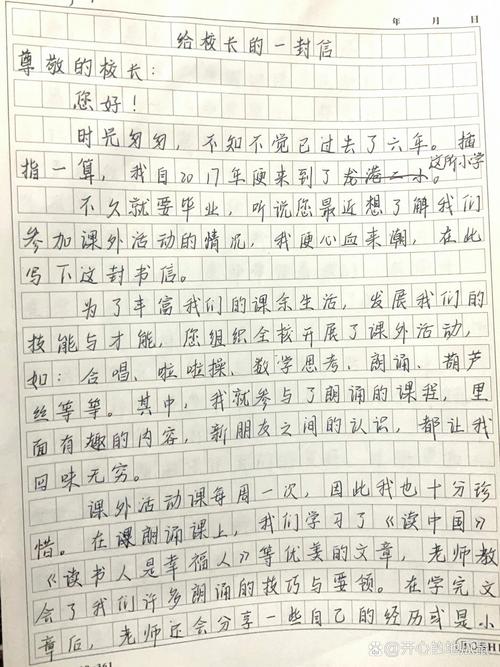 年 月 日
给校长的一封信
尊敬的校长：
您好！
时光匆匆，不知不觉已过去了六年。掐
指一算，我自2017年便来到了龙港二小这所小学。
不久就要毕业，听说您最近想了解我们
参加课外活动的情况，我便心血来潮，在此
写下这封书信。
为了丰富我们的课余生活，发展我们的
技能与才能，您组织全校开展了课外活动，
如：合唱、啦啦操、数学思考、朗诵、葫芦
丝等等。其中，我就参与了朗诵的课程，里
面有趣的内容，新朋友之间的认识，都让我
回味无穷。
课外活动课每周一次，因此我也十分珍
惜。在朗诵课上，我们学习了《读中国》
《读书人是幸福人》等优美的文章，老师教
会了我们许多朗诵的技巧与要领。在学完文
章后，老师还会分享一些自己的经历或是小